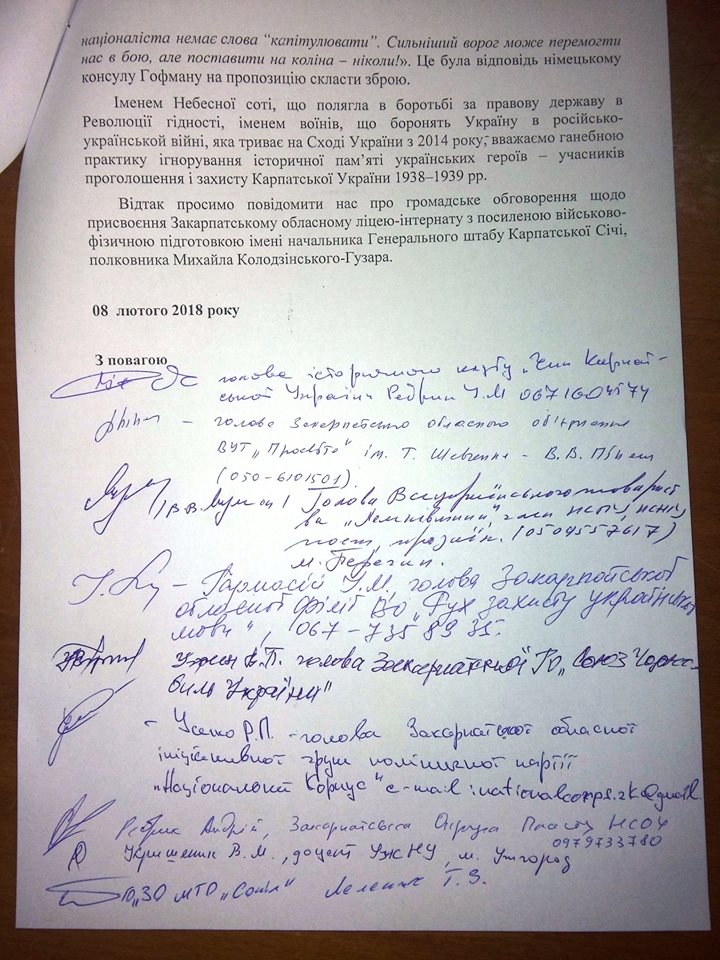 націоналіста немає слова “капітулювати”. Сильніший ворог може перемогти
нас в бою, але поставити на коліна – ніколи!». Це була відповідь німецькому
консулу Гофману на пропозицію скласти зброю.
Іменем Небесної соті, що полягла в боротьбі за правову державу в
Революції гідності, іменем воїнів, що боронять Україну в російсько-
українській війні, яка триває на Сході України з 2014 року, вважаємо ганебною
практику ігнорування історичної пам’яті українських героїв – учасників
проголошення і захисту Карпатської України 1938–1939 рр.
Відтак просимо повідомити нас про громадське обговорення щодо
присвоєння Закарпатському обласному ліцею-інтернату з посиленою військово-
фізичною підготовкою імені начальника Генерального штабу Карпатської Січі,
полковника Михайла Колодзінського-Гузара.
08 лютого 2018 року
З повагою
голова історичного клубу „Чин Карпат-
ської України Ребрик І.М 0671604574
– голова Закарпатсько обласного об'єднання
ВУТ „Просвіта” ім. Т. Шевченка – В.В.
(050-6101501).
Голова Всеукраїнського товарист
ва НСПУ, НСЖУ,
(0504557617)
м. Перечин.
– Гармасій голова Закарпатської
обласної філії ВО „Рух захисту української
мови”, 067–7358935.
голова Закарпатської ГО „Союз Чорно-
биль України”
– Усенко Р.П. – голова Закарпатської обласної
ініціативної групи політичної партії
„Національний Корпус” e-mail: nationalcorps.zk@gmail
Ребрик Андрій, Закарпатська Округа Пласту НСОУ
0979733780
В.М., доцент УжНУ, м. Ужгород
МТО „Сокіл” Т.З.